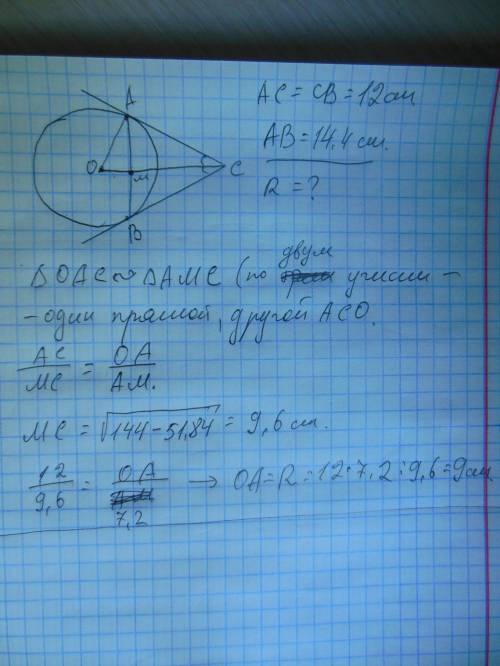 A
O
M
C
B
AC = CB = 12 см
AB = 14,4 см.
R = ?
△OAC ~ △AMC (по двум углам -
- один прямой, другой ACO.
AC/MC = OA/AM.
MC = √144-51,84 = 9,6 см.
12/9,6 = OA/7,2 → OA = R = 12·7,2:9,6 = 9см